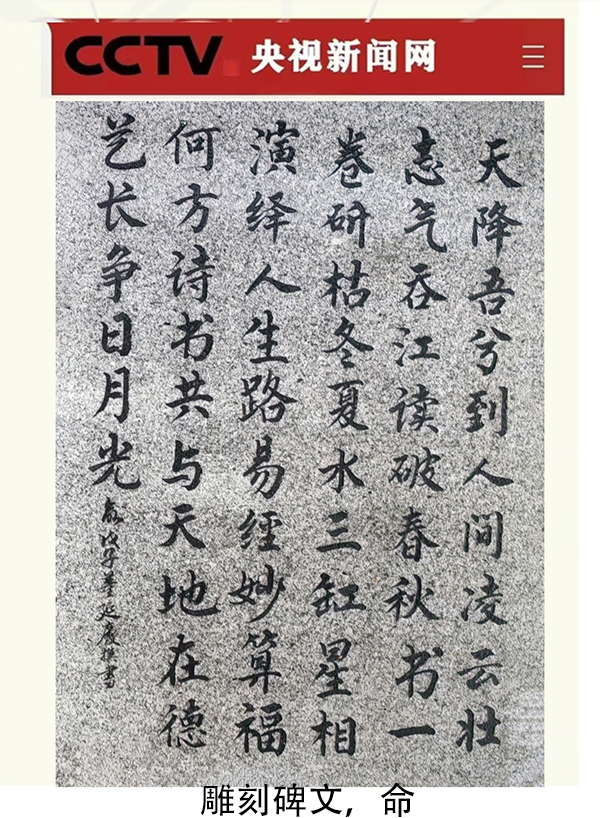 CCTV 央视新闻网
天降吾兮到人间凌云壮
志气吞江读破春秋书一
卷研枯冬夏水三缸星相
演绎人生路易经妙算福
何方诗书共与天地在德
艺长争日月光
雕刻碑文，命